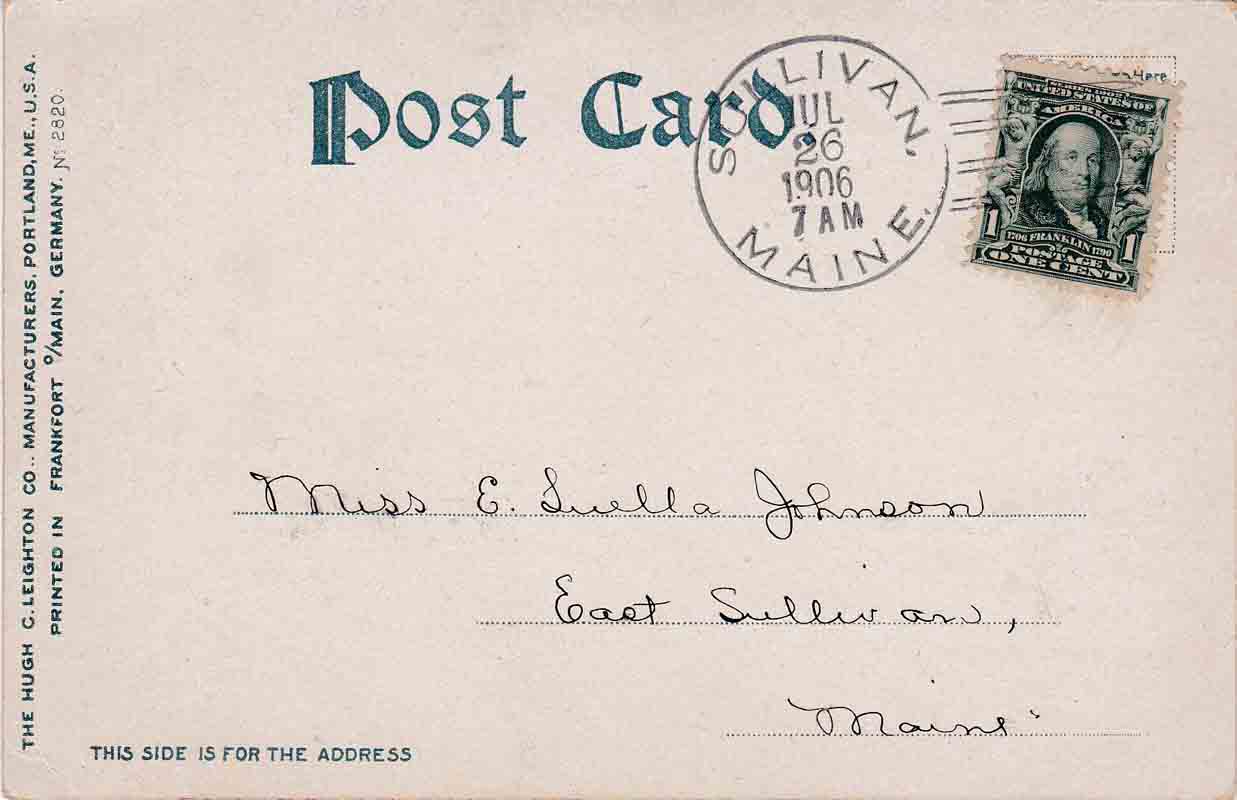 Post Card.
SULLIVAN,
JUL
26
1906
7 AM
MAINE.
Here
UNITED STATES OF
AMERICA
1 1
1706 FRANKLIN 1790
POSTAGE
ONE CENT
THE HUGH C. LEIGHTON CO., MANUFACTURERS, PORTLAND, ME., U.S.A.
PRINTED IN FRANKFORT O/MAIN, GERMANY. No 2820.
Miss E. Luella Johnson
East Sullivan,
Maine
THIS SIDE IS FOR THE ADDRESS